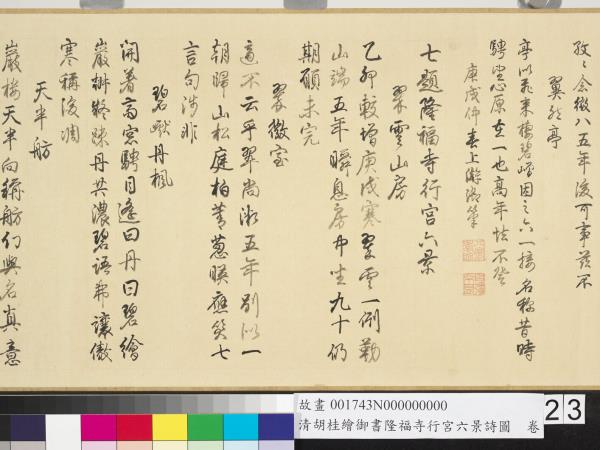 孜々念徵八五年後可事茲不
翼然亭
亭以飛來樓碧嶝因之六一接名稱昔時
騁望心原在一也高年怯不登
庚戌仲春上澣御筆
七題隆福寺行宮六景
翠雲山房
乙卯較增庚戌寒翠雲一例勒
山端五年瞬息房中坐九十仍
期願未完
翠微室
適不云乎翠尚淑五年別以一
朝歸山松庭柏菁蔥暎應笑七
言句涉非
碧巘丹楓
開着高窓騁目逢曰丹曰碧繪
巖辨終殊丹共濃碧語希讓傲
寒稱後凋
天半舫
巖樓天半向稱舫幻與名真意
故畫 001743N000000000
清胡桂繪御書隆福寺行宮六景詩圖 卷
23